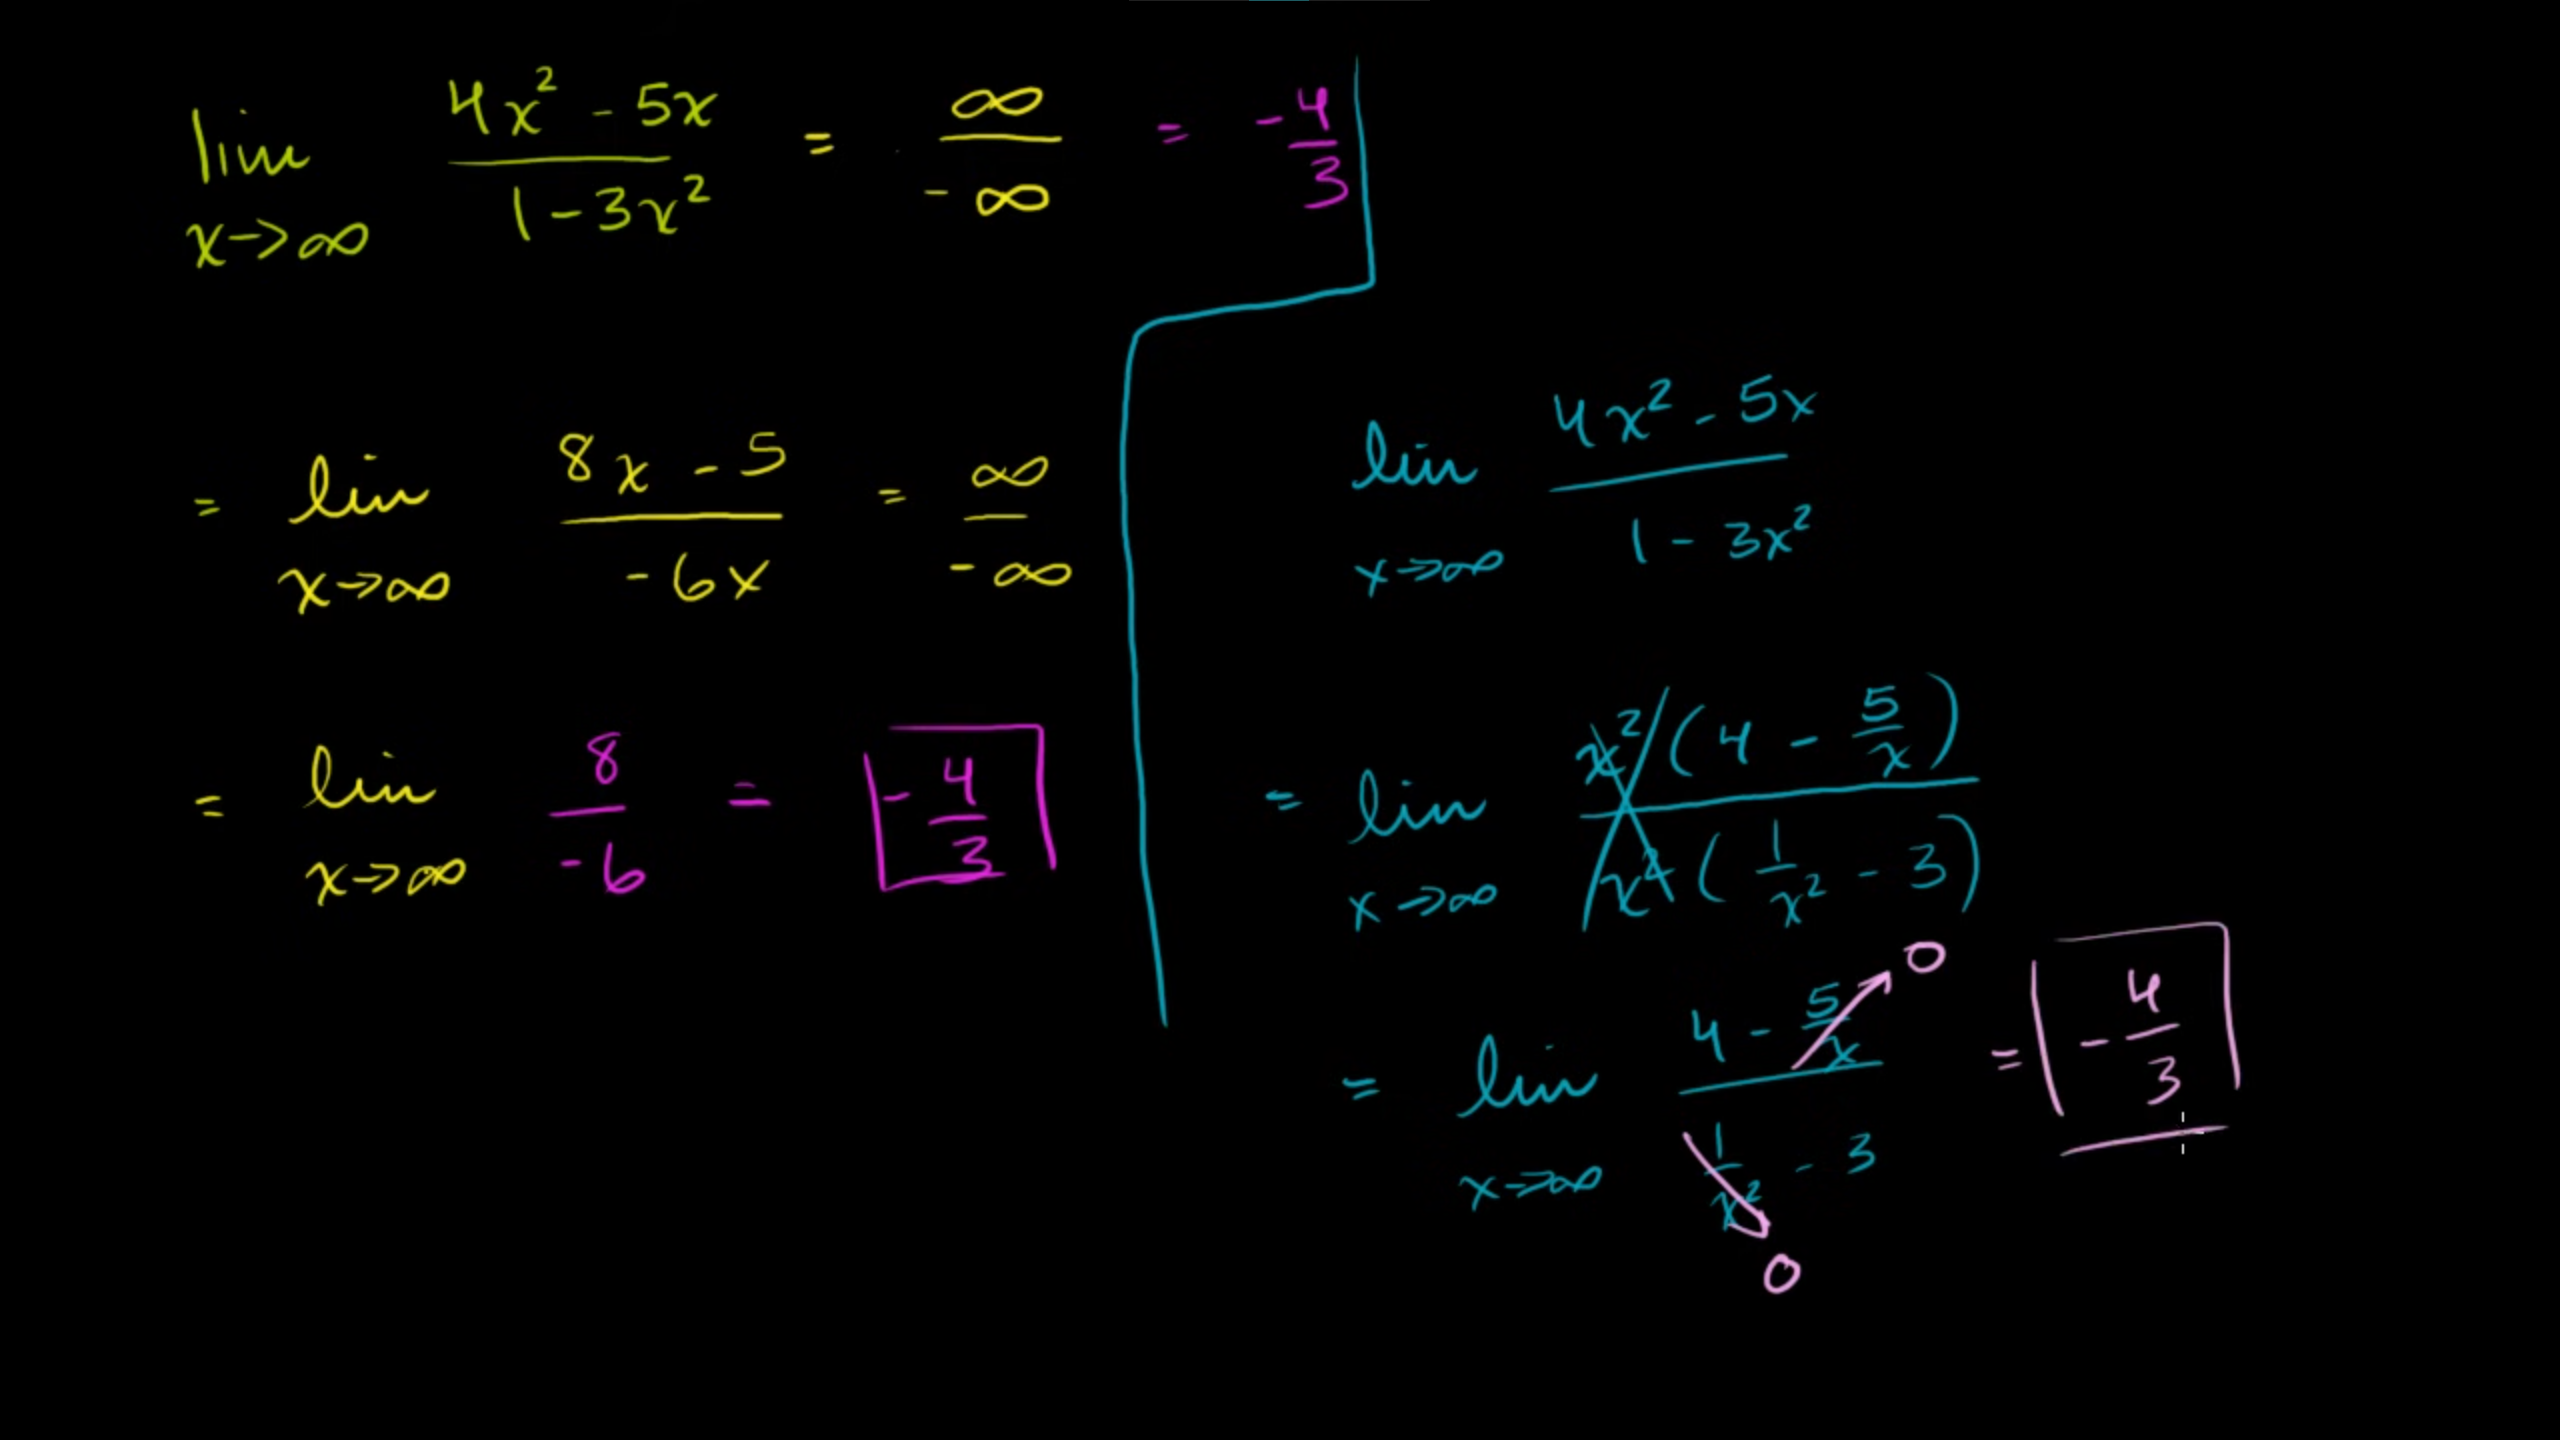 lim x→∞ (4x² - 5x)/(1 - 3x²) = ∞/-∞ = -4/3
= lim x→∞ (8x - 5)/(-6x) = ∞/-∞
= lim x→∞ 8/-6 = -4/3
lim x→∞ (4x² - 5x)/(1 - 3x²)
= lim x→∞ x²(4 - 5/x)/x²(1/x² - 3)
= lim x→∞ (4 - 5/x)/(1/x² - 3) = -4/3
0
0